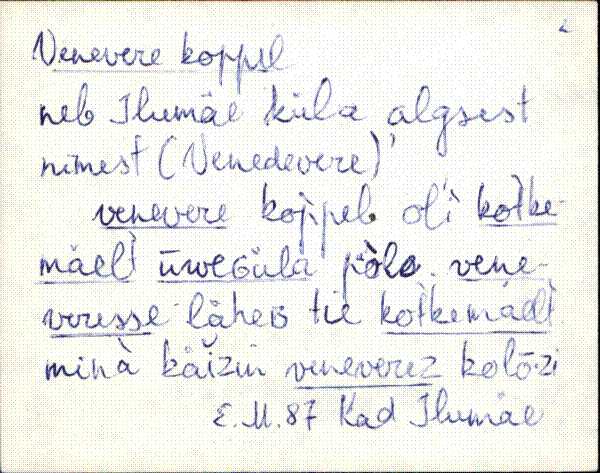 Venevere koppel
neb Ilumäe küla algsest
nimest (Venedevere)
venevere kop̀peᴌ ol'i kot̀ke-
mäelt̀ ūweGüla pòlo. vene-
veresse läheB tie kot̀kemäelt̀
minà käizin veneverez kolōzi
E.M. 87 Kad Ilumäe